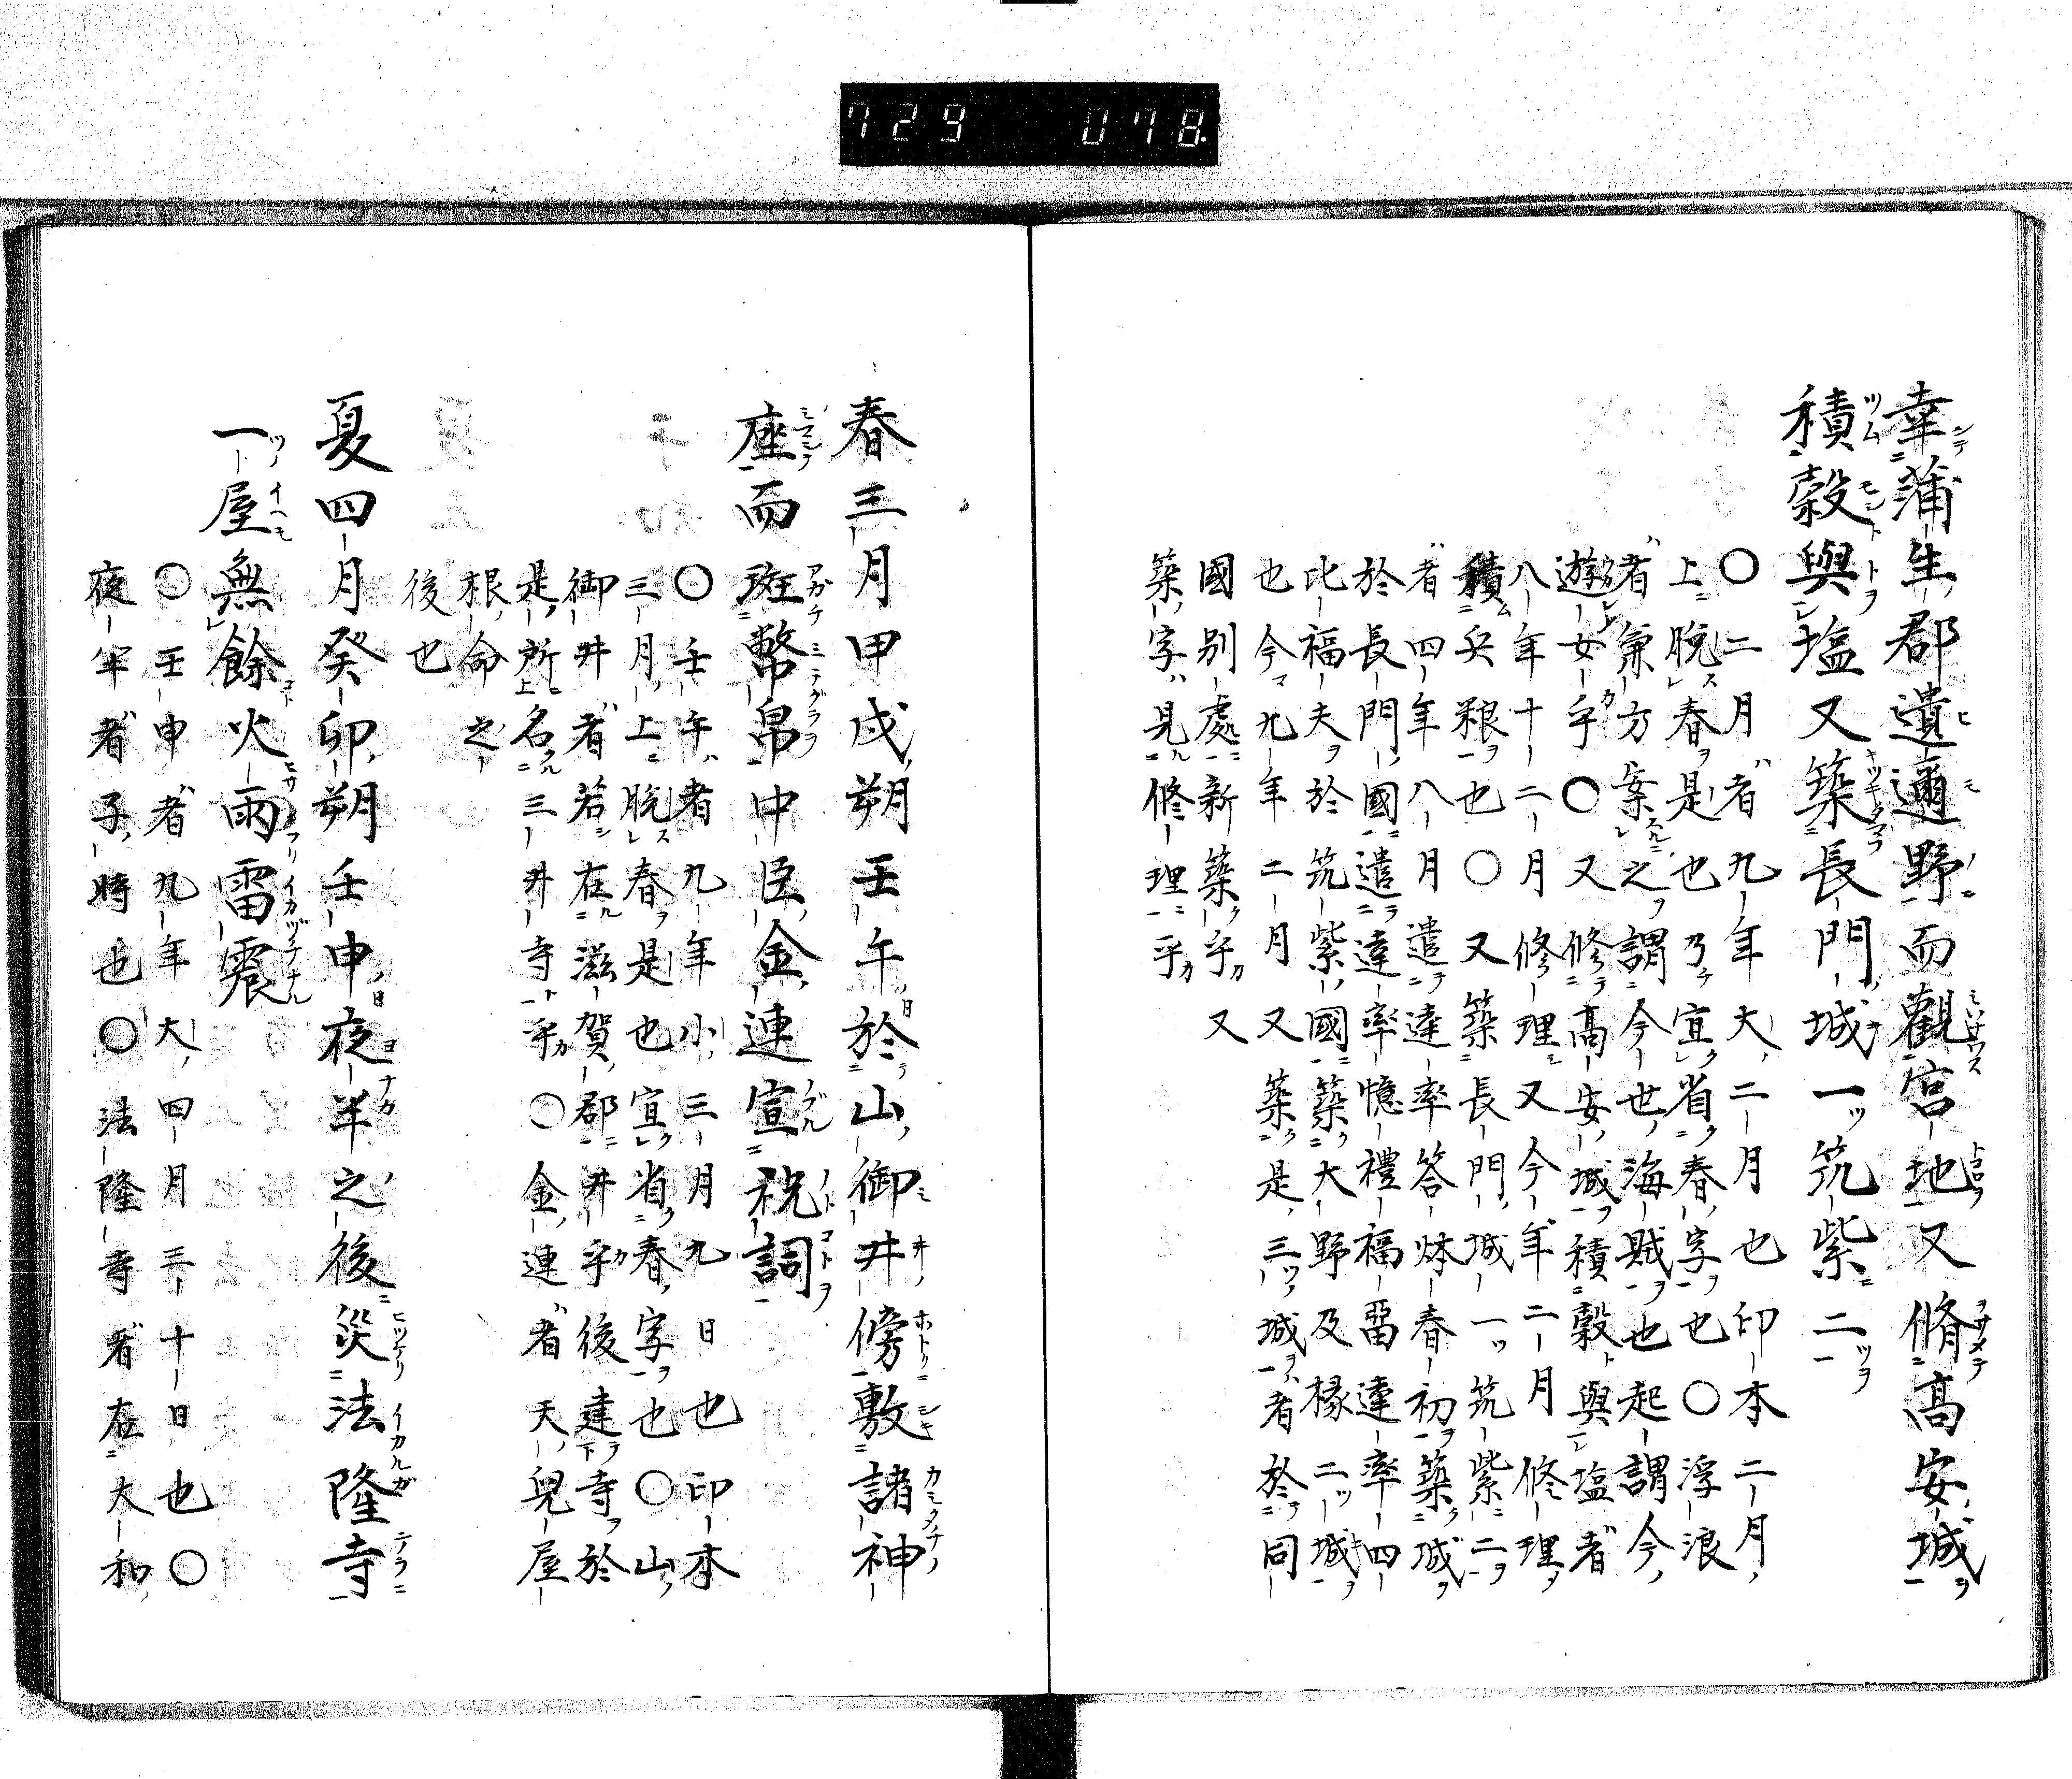 729 078
幸蒲生郡遺邇野而觀宮地又脩高安城
積穀與塩又築長門城一筑紫二
〇二月者九年大二月也印本二月
上脱春是也乃宜省春字也〇浮浪
者兼方案之謂今世海賊也起謂今
遊女乎〇又修高安城積穀與塩者
八年十二月修理又今年二月修理
積兵粮也〇又築長門城一筑紫二
者四年八月遣達率答㶱春初築城
於長門國遣達率憶禮福畱達率四
比福夫於筑紫國築大野及椽二城
也今九年二月又築是三城者於同
國別處新築乎又
築字見修理乎
春三月甲戌朔壬午於山御井傍敷諸神
座而班幣帛中臣金連宣祝詞
〇壬午者九年小三月九日也印本
三月上脱春是也宜省春字也〇山
御井者若在滋賀郡井乎後建寺於
是所名三井寺乎〇金連者天兒屋
根命之
後也
夏四月癸卯朔壬申夜半之後災法隆寺
一屋無餘火雨雷震
〇壬申者九年大四月三十日也〇
夜半者子時也〇法隆寺者在大和